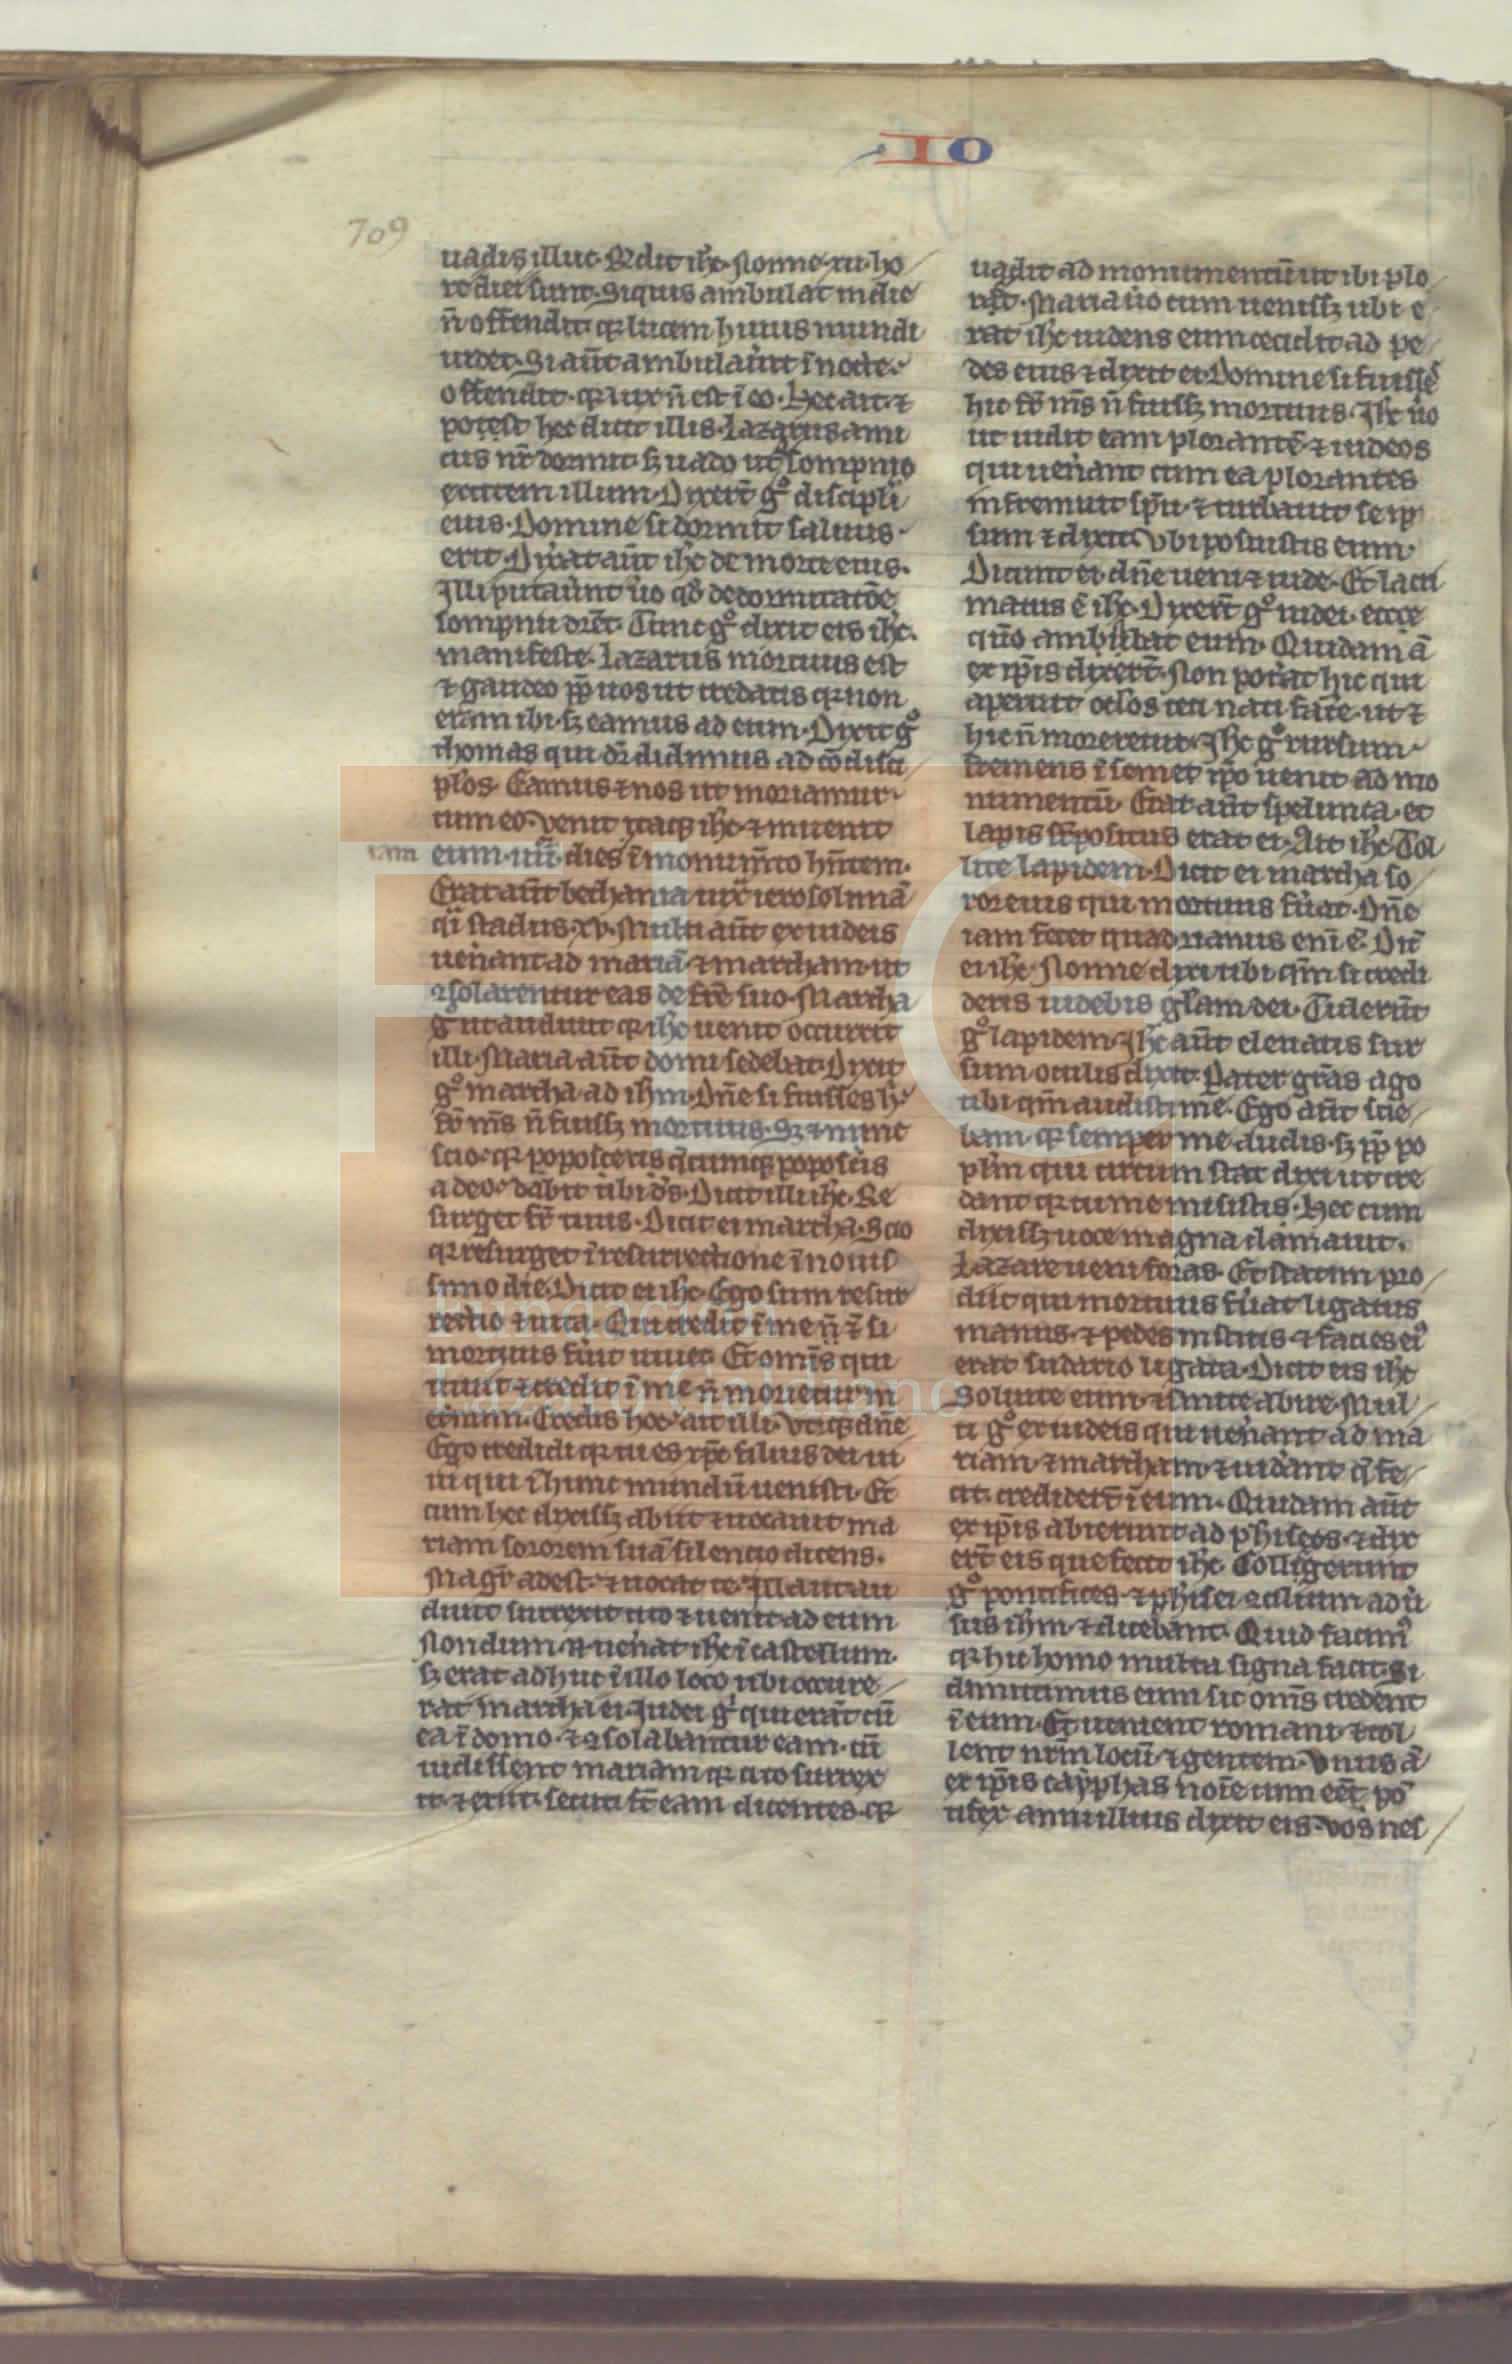 IO
709
uadis illuc. Rndit ihc. Nonne .xii. ho
re diei sunt. Siquis ambulat in die
n̄ offendit. qr lucem huius mundi
uidet. Si aūt ambulauīt ī nocte.
offendit. qr lux n̄ est ī eo. Hec ait. ⁊
potest hec dicit illis. Lazarus ami
cus nr̄ dormit. sꝫ uado ut a sompnio
excitem illum. Dixert̄ gͦ discipli
eius. Domine si dormit saluus
erit. Dixat aūt ihc de morte eius.
Illi putauīnt uͦo qd̄ de dormitatōe
sompnii dr̄et. Tunc gͦ dixit eis ihc.
manifeste. Lazarus mortuus est
⁊ gaudeo ꝓpꝑ uos ut credatis qr non
eram ibi. sꝫ eamus ad eum. Dixit gͦ
thomas qui dr̄ didimus ad cōdisci
plos. Eamus ⁊ nos ut moriamur
cum eo. Venit itaqꝫ ihc ⁊ inuenit
iam
eum .iiii. dies ī monumto hn̄tem.
Erat aūt bethania iuxͣ ierosolimā
qͣi stadiis .xv. Multi aūt ex iudeis
uenīant ad mariā ⁊ martham. ut
ꝯsolarentur eas de fr̄e suo. Martha
gͦ ut audiuit qr ihc uenit occurrit
illi. Maria aūt domi sedebat. Dixit
gͦ martha ad ihm. Dn̄e si fuisses hͨ
fr̄ ms̄ n̄ fuissꝫ mortuus. Sꝫ ⁊ nunc
scio. qr poposceris qͨcumqꝫ poposcͥis
a deo. dabit tibi ds̄. Dicit illi ihc. Re
surget fr̄ tuus. Dicit ei martha. Scio
qr resurget ī resurrectione ī nouis
simo die. Dicit ei ihc. Ego sum resur
rectio ⁊ uita. Qui credit ī me n̄ ⁊̄ si
mortuus fūit uiuet. Et omīs qui
uiuit ⁊ credit ī me n̄ morietur in
et̄num. Credis hoc. ait illi. Vtiqꝫ dn̄e
Ego credidi qr tu es xp̄c filius dei ui
ui qui ī hunc mundū uenisti. Et
cum hec dixissꝫ abiit ⁊ uocauit ma
riam sororem suā silencio dicens.
Magr̄ adest. ⁊ uocat te. Illa ut au
diuit surrexit cito ⁊ uenit ad eum
Nondum n̄ uenīat ihc ī castellum.
sꝫ erat adhuc ī illo loco ubi occure
rat martha ei. Iudei gͥ qui erāt cū
ea ī domo. ⁊ ꝯsolabantur eam. cū
uidissent mariam qr cito surrex
it. ⁊ exiit. secuti st̄ eam dicentes. qr
uadit ad monumentū ut ibi plo
ret. Maria uͦo cum uenissꝫ ubi e
rat ihc uidens eum cecidit ad pe
des eius ⁊ dixit ei. Domine si fuisses
hic fr̄ ms̄ n̄ fuissꝫ mortuus. Ihc uͦo
ut uidit eam plorantē ⁊ iudeos
qui uenīant cum ea plorantes
infremuit sp̄u. ⁊ turbauit se ip
sum ⁊ dixit. Vbi posuistis eum.
Dicunt ei dn̄e ueni ⁊ uide. Et lacri
matus ē ihc. Dixert̄ gͦ iudei. ecce
quͦo amabat eum. Quidam ā
ex ip̄is dixert̄. Non potāt hic qui
aperuit oclos ceci nati facͤe. ut ⁊
hic n̄ moreretur. Ihc gͦ rursum
fremens ī semet ip̄o uenit ad mo
numentū. Erat aūt spelunca. et
lapis supͥpositus erat ei. Ait ihc. Tol
lite lapidem. Dicit ei martha so
ror eius qui mortuus fūat. Dn̄e
iam fetet quadriuanus enī ē. Dic̄
ei ihc. Nonne dixi tibi qm̄ si credi
deris uidebis glam̄ dei. Tulerūt
gͦ lapidem. Ihc aūt eleuatis sur
sum oculis dixit. Pater grās ago
tibi qm̄ audisti me. Ego aūt scie
bam. qr semper me audis. sꝫ ꝓpꝑ po
plm̄ qui circum stat dixi ut cre
dant qr tu me misistis. Hec cum
dixissꝫ uoce magna clamauit.
Lazare ueni foras. Et statim pro
diit qui mortuus fūat ligatus
manus. ⁊ pedes institis ⁊ facies eiꝰ
erat sudario ligata. Dicit eis ihc
Soluite eum. ⁊ sinite abire. Mul
ti gͦ ex iudeis qui uenīant ad ma
riam. ⁊ martham. ⁊ uidāant q̄ fe
cit. credidert̄ ī eum. Quidam aūt
ex ip̄is abierunt ad phiseos. ⁊ dix
ert̄ eis que fecit ihc. Colligerunt
gͦ pontifices. ⁊ phisei ꝯsilium adū
sus ihm. ⁊ dicebant. Quid facimꝰ
qr hic homo multa signa facit. Si
dimittimus eum sic omīs credent
ī eum. Et uenient romani. ⁊ tol
lent nr̄m locū. ⁊ gentem. Vnus ā
ex ip̄is cayphas noīe cum eēt pō
tifex anni illius dixit eis. Vos nes
Fundación
Lázaro Galdiano